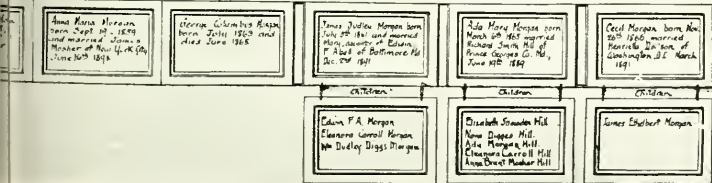 Anna Maria Morgan
born Sept 19 - 1859
and married James
Mosher of New York City
June 16th
George Columbus Morgan
born July 1863 and
died June 1865
James Dudley Morgan born
July 5th 1861 and married
Mary, daughter of Edwin
F Abell of Baltimore Md
Dec. 2nd 1891
Ada Mary Morgan born
March 6th 1865 married
Richard Smith Hill of
Prince Georges Co. Md,
June 19th 1889
Cecil Morgan born Nov.
1866 married
Henrietta of
Washington D.C March
1891
Children
Children
Children
Edwin F.A. Morgan
Eleanora Carroll Morgan
Wm Dudley Diggs Morgan
Elizabeth Snowden Hill
Nora Digges Hill.
Ada Morgan Hill.
Eleanora Carroll Hill
Anna Brant Mosher Hill
James Ethelbert Morgan